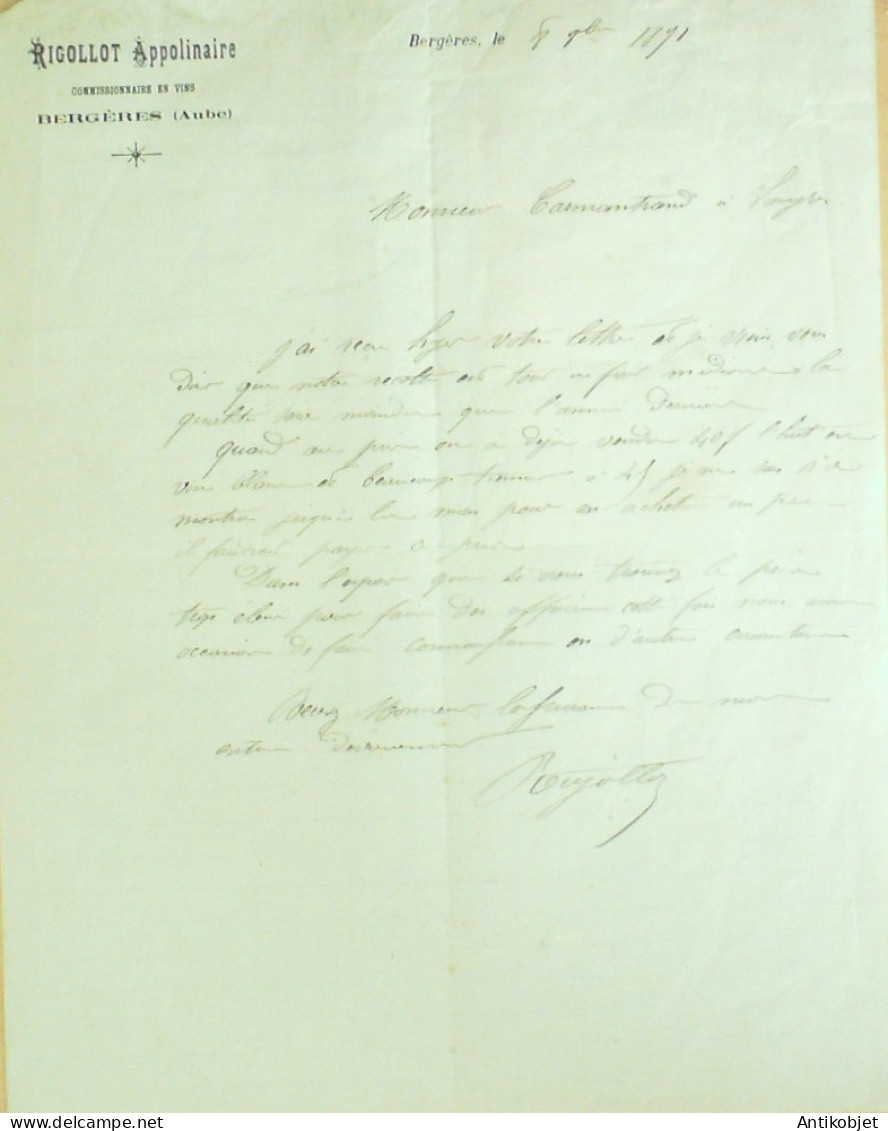 RIGOLLOT Appolinaire
COMMISSIONNAIRE EN VINS
BERGÈRES (Aube)
Bergères, le 8 9bre 1891
Monsieur Carmantrand à
J'ai recu hyer votre lettre et je viens vous
dire que notre recolte est tout a fait mediocre la
qualité moindre que l'année derniere
quand au prix on a deja vendu 40f l'hect en
vin blanc et beaucoup tienne à 45 je ne sais s'il
montre jusque la mais pour en acheté un peu
il faudrait payer ce prix
Dans l'espoir que si vous trouvez le prix
trop élevé pour faire des affaires cette fois nous aurons
occasion de faire connaissance en d'autre
Recevez Monsieur l'assurance de mon
entier devouement
Rigollot
Antikobjet